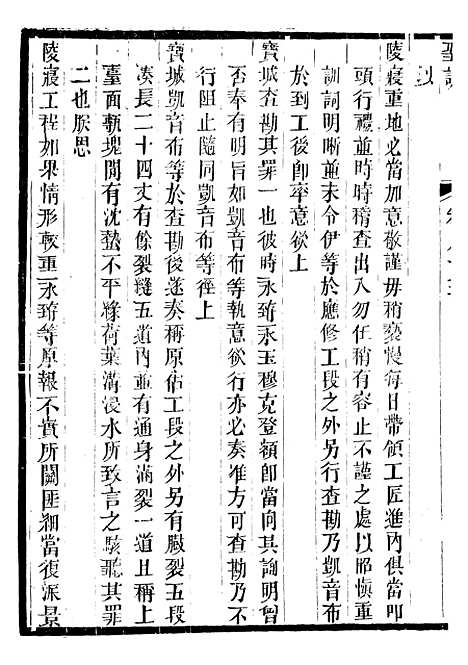 陵寢重地必當加意敬謹毋稍褻慢每日帶領工匠進內俱當叩
頭行禮並時時稽查出入勿任稍有容止不謹之處以昭慎重
訓詞明晰並未令伊等於應修工段之外另行查勘乃凱音布
於到工後卽率意欲上
寶城查勘其罪一也彼時永䇐永玉穆克登額卽當向其詢明曾
否奉有明旨如凱音布等執意欲行亦必奏准方可查勘乃不
行阻止隨同凱音布等徑上
寶城凱音布等於查勘後遂奏稱原估工段之外另有臌裂五段
湊長二十四丈有餘裂縫五道內並有通身滿裂一道且稱上
臺面甎塊間有沈墊不平緣荷葉溝浸水所致言之駭聽其罪
二也朕思
陵寢工程如果情形較重永等原報不實所關匪細當復派景